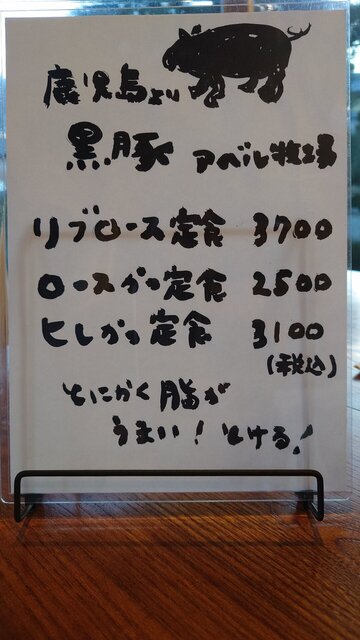 鹿児島より
黒豚 アベル牧場
リブロース定食 3700
ロースかつ定食 2500
ヒレかつ定食 3100
(税込)
とにかく脂が
うまい!とける!